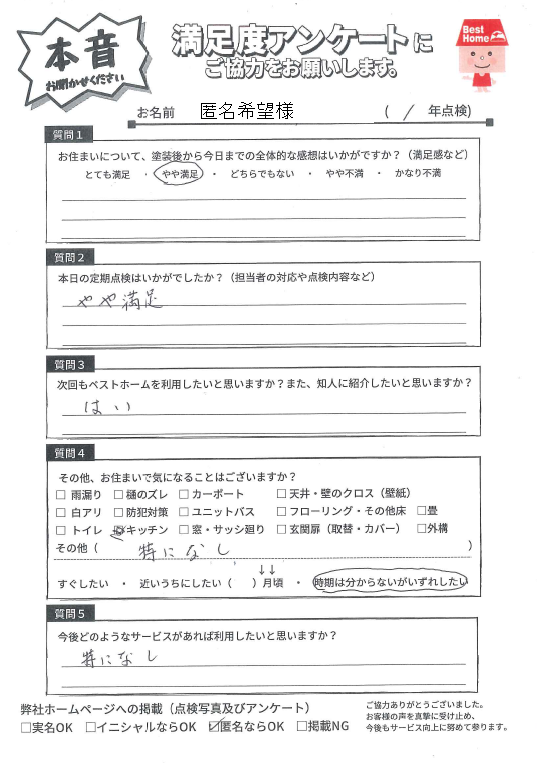 本音
お聞かせください
満足度アンケートに
ご協力をお願いします。
Best
Home
お名前 匿名希望様 ( / 年点検)
質問1
お住まいについて、塗装後から今日までの全体的な感想はいかがですか？（満足感など）
とても満足 ・ やや満足 ・ どちらでもない ・ やや不満 ・ かなり不満
質問2
本日の定期点検はいかがでしたか？（担当者の対応や点検内容など）
やや満足
質問3
次回もベストホームを利用したいと思いますか？また、知人に紹介したいと思いますか？
はい
質問4
その他、お住まいで気になることはございますか？
□ 雨漏り □ 樋のズレ □ カーポート □ 天井・壁のクロス（壁紙）
□ 白アリ □ 防犯対策 □ ユニットバス □ フローリング・その他床 □ 畳
□ トイレ ☑ キッチン □ 窓・サッシ廻り □ 玄関扉（取替・カバー） □ 外構
その他（ 特になし ）
↓↓
すぐしたい ・ 近いうちにしたい（ ）月頃 ・ 時期は分からないがいずれしたい
質問5
今後どのようなサービスがあれば利用したいと思いますか？
特になし
弊社ホームページへの掲載（点検写真及びアンケート）
□実名OK □イニシャルならOK ☑匿名ならOK □掲載NG
ご協力ありがとうございました。
お客様の声を真摯に受け止め、
今後もサービス向上に努めて参ります。